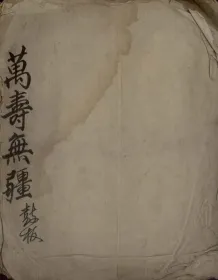 萬壽無疆
鼓板